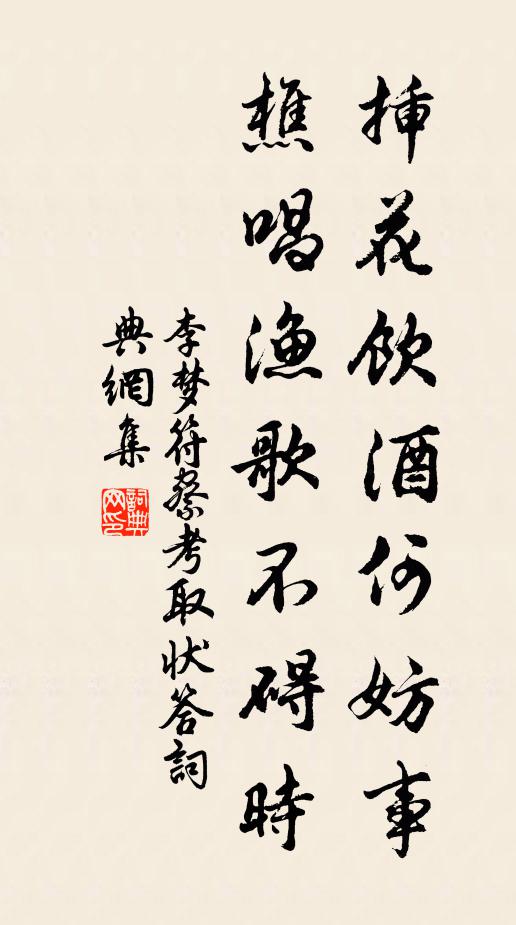 挿花飲酒何妨事
樵唱漁歌不碍時
李梦符察考取状答詞
典網集
詞典網印